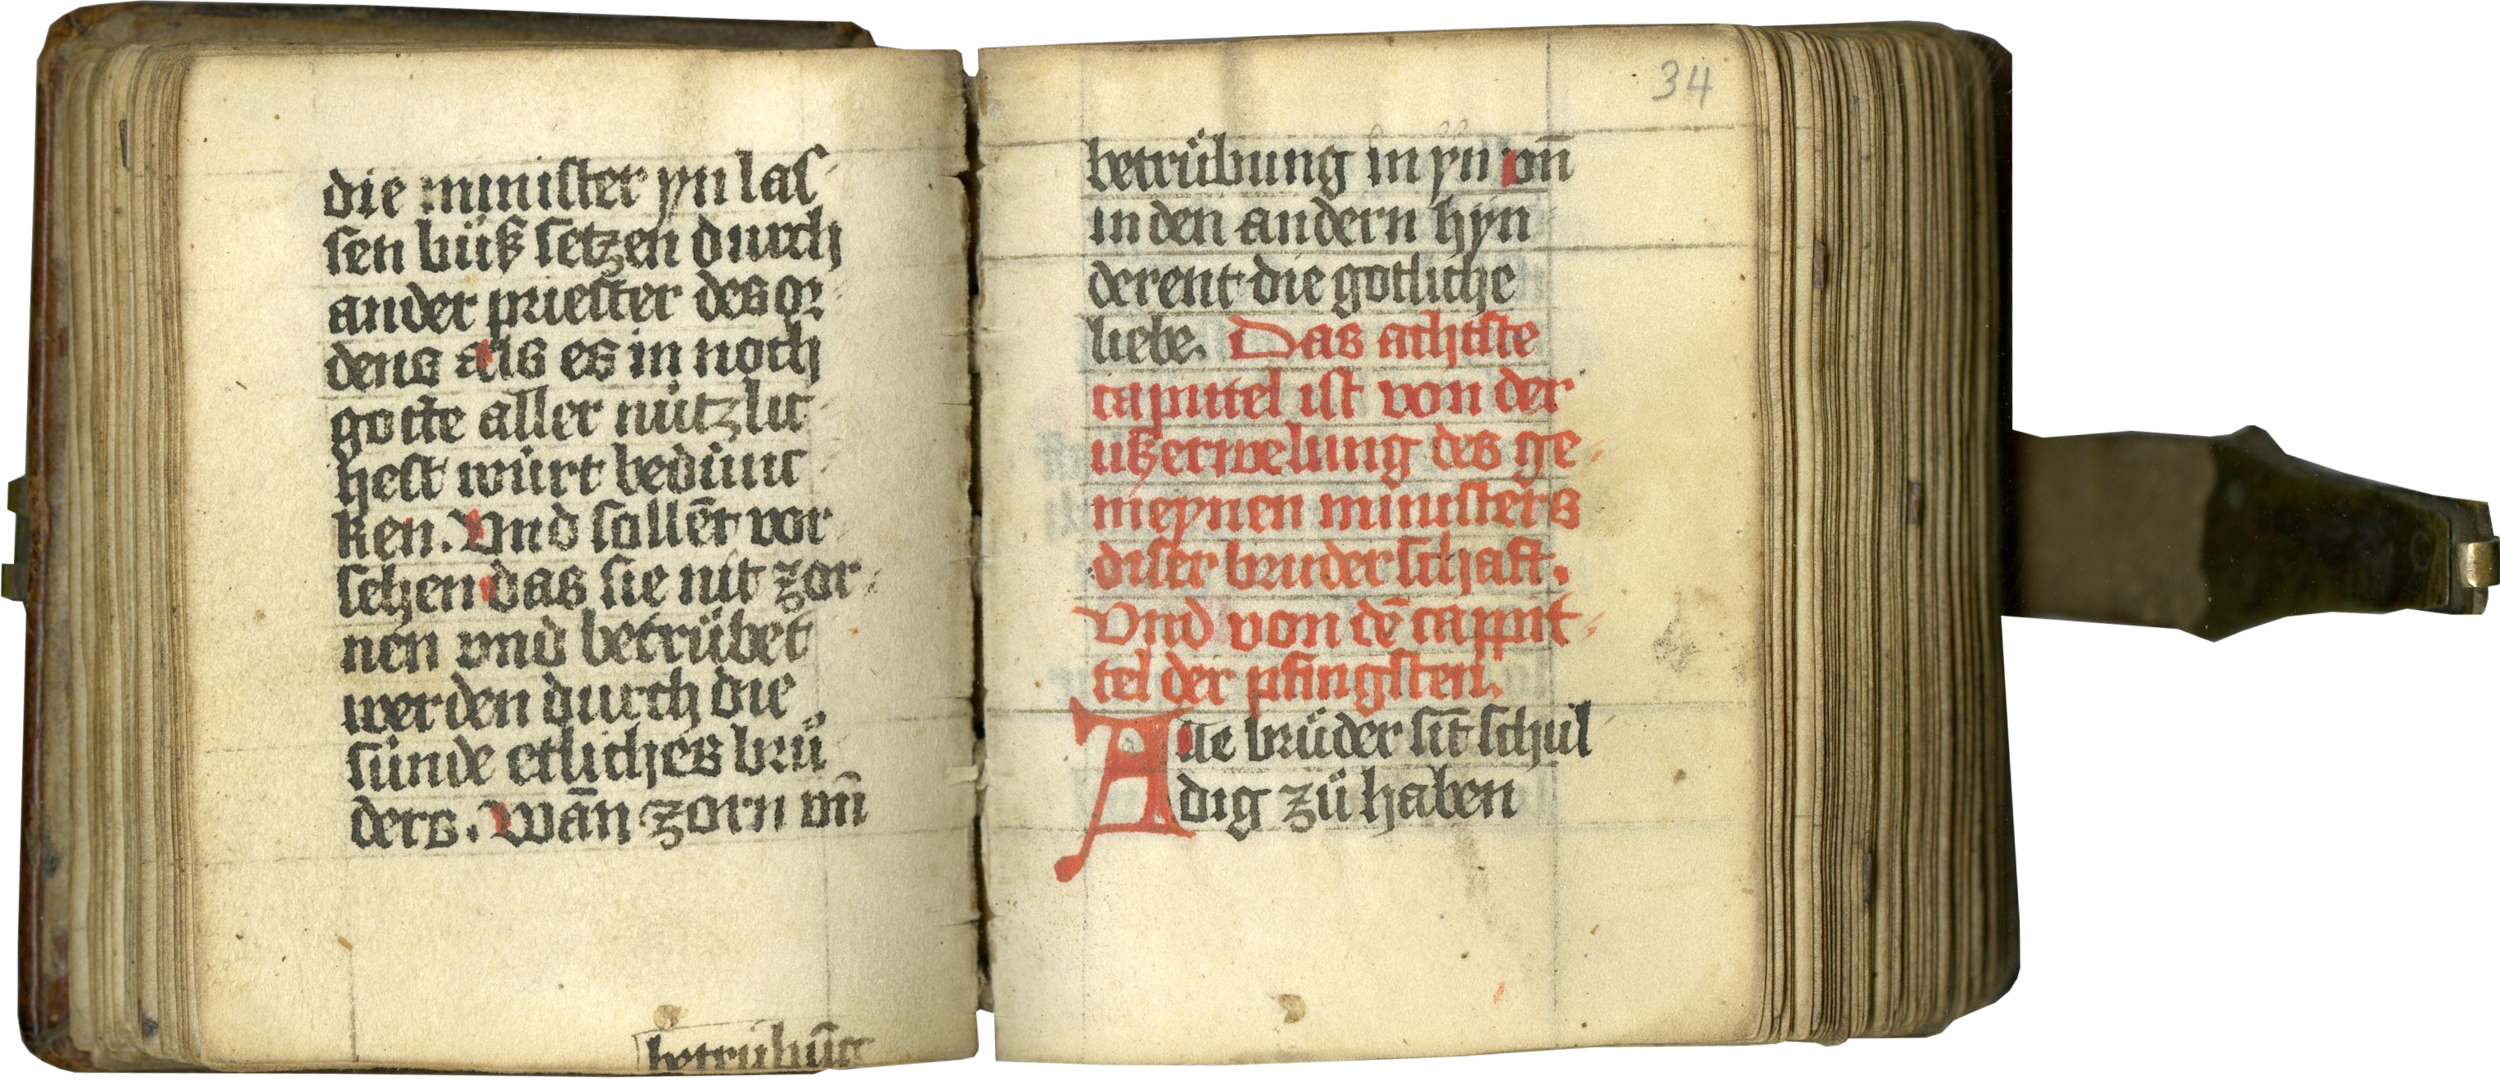 die minister yn las-
sen büß setzen durch
ander priester des or-
dens als es in noch
gotte aller nützlic-
hest würt bedunc-
ken. Vnd sollēt vor-
sehen das sie nit zor-
nen vnd betrübet
werden durch die
sünde etliches brů-
ders. Wān zorn vn̄
betrübūg
34
betrübung in yn vn̄
in den andern hyn-
derent die gotliche
liebe. Das achtste
capittel ist von der
ußerwelung des ge-
meynen ministers
diser bruderschaft.
Vnd von dē cappit-
tel der pfingsten.
Alle brüder sīt schul
dig zů haben